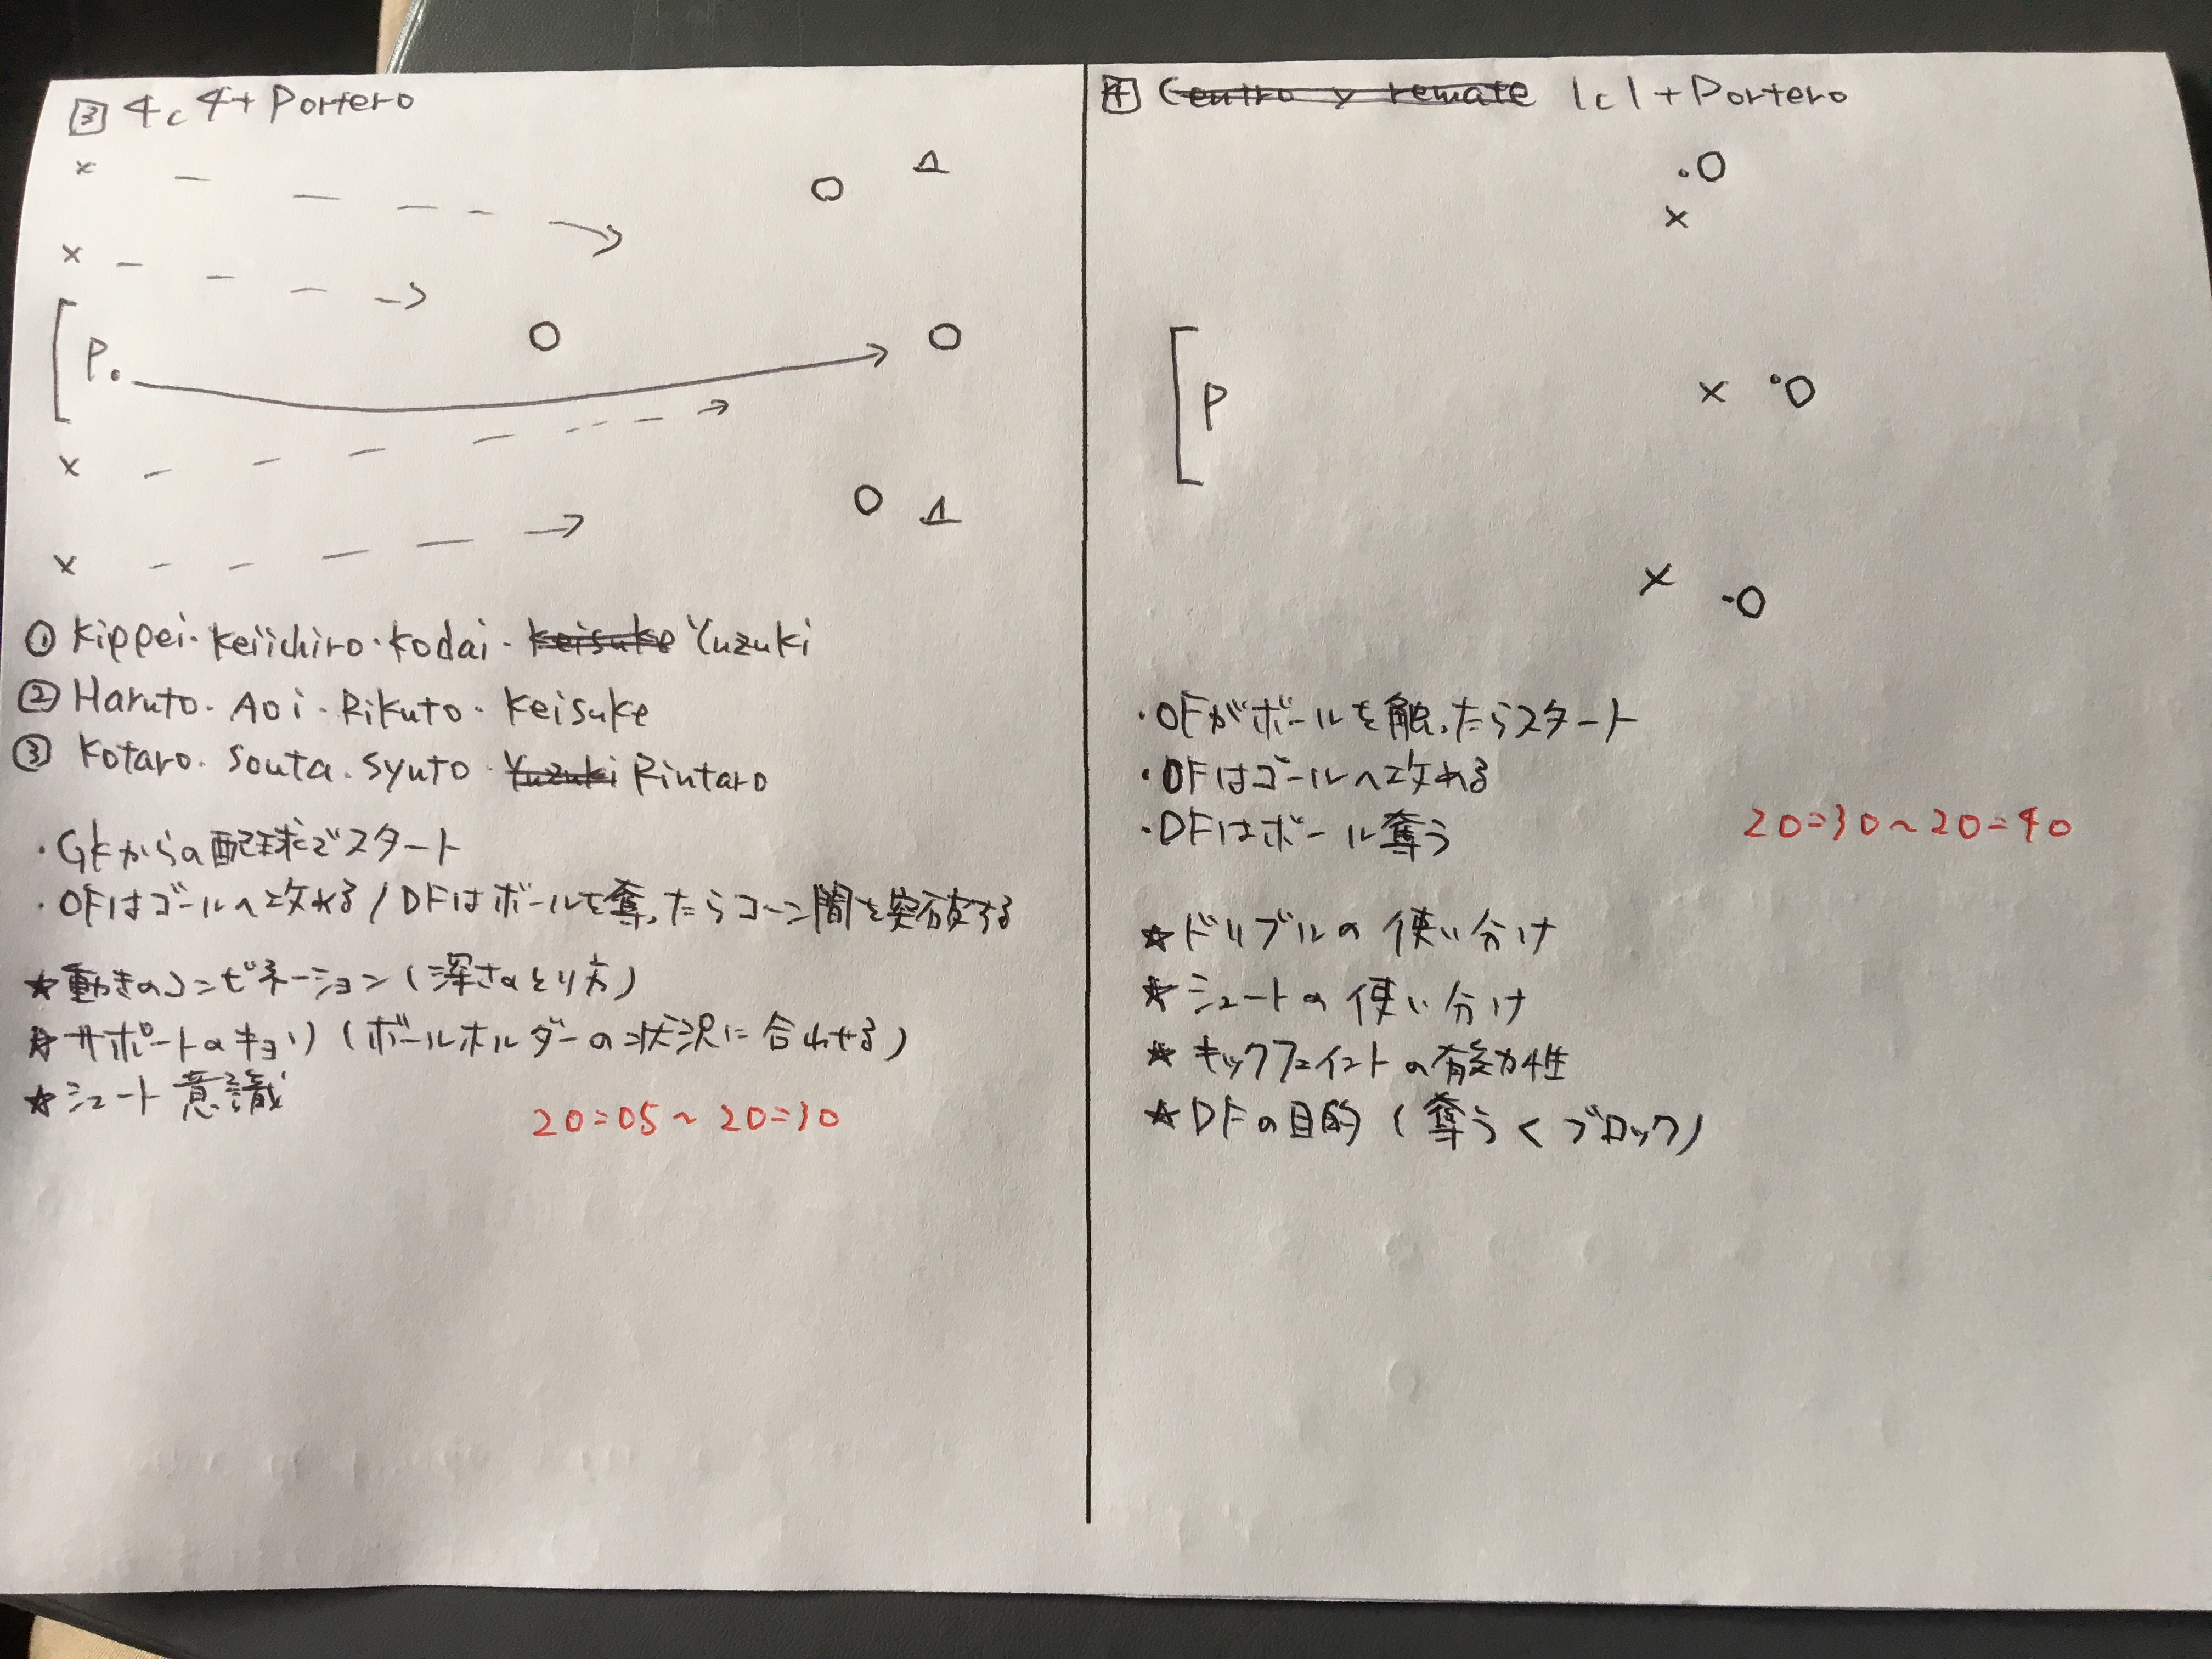 3 4c4+Portero
P.
① Kippei・Keiichiro・Kodai・Keisuke Yuzuki
② Haruto・Aoi・Rikuto・Keisuke
③ Kotaro・Souta・Syuto・Yuzuki Rintaro
・GKからの配球でスタート
・OFはゴールへ攻める/DFはボールを奪ったらコーン間を突破する
★動きのコンビネーション(深さのとり方)
★サポートのキョリ(ボールホルダーの状況に合わせる)
★シュート意識
20=05~20=30
4 Centro y remate 1c1+Portero
P
・OFがボールを触ったらスタート
・OFはゴールへ攻める
・DFはボール奪う
20=30~20=40
★ドリブルの使い分け
★シュートの使い分け
★キックフェイントの有効性
★DFの目的(奪う<ブロック)